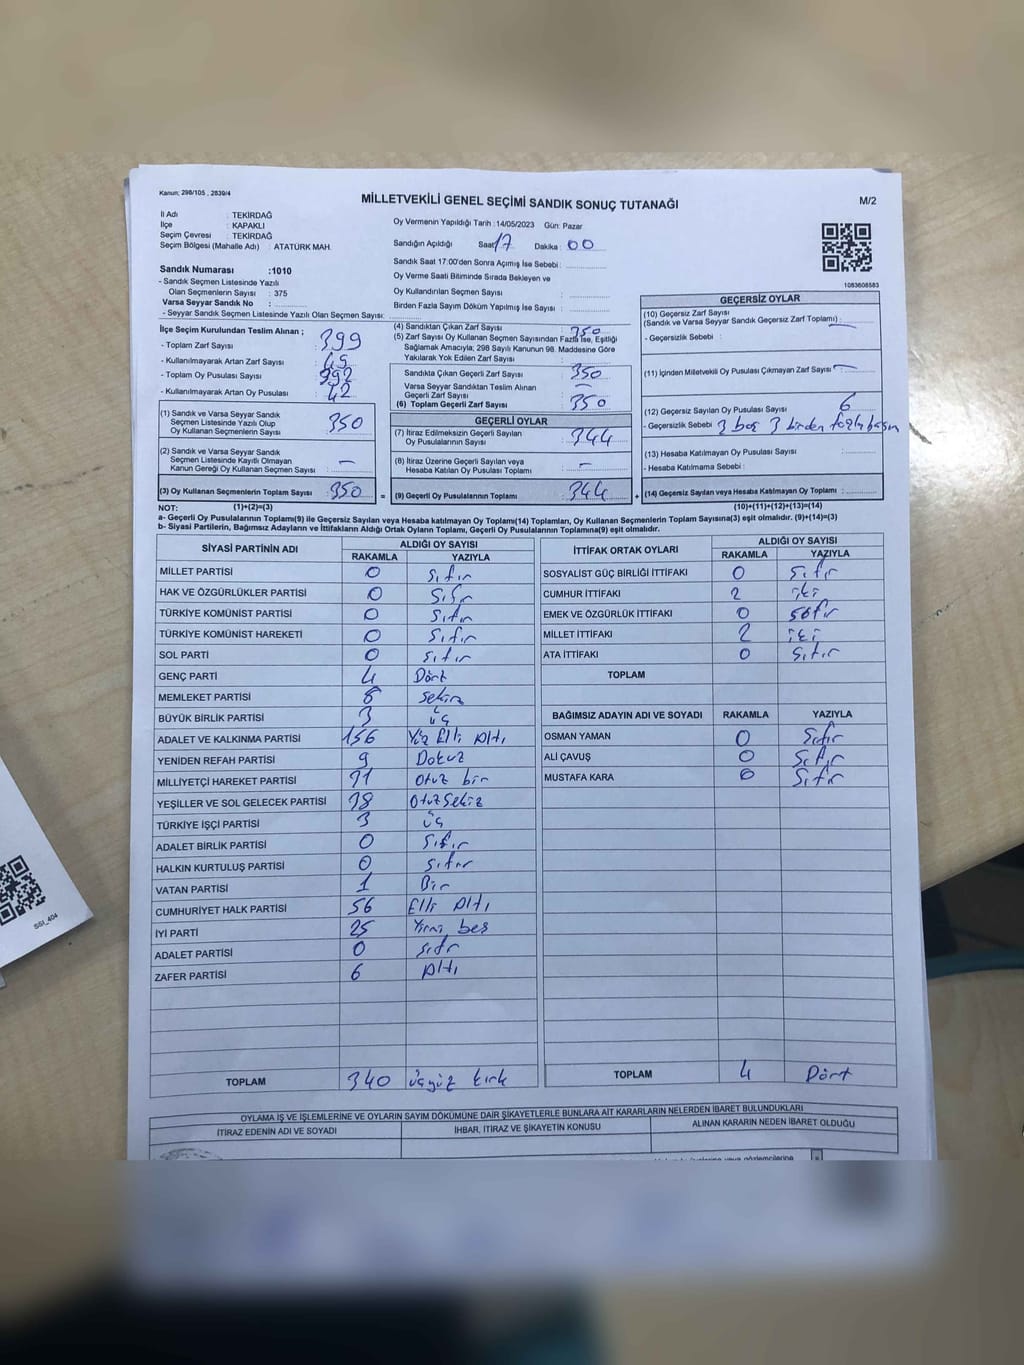 Kanun; 298/105 , 2839/4
MİLLETVEKİLİ GENEL SEÇİMİ SANDIK SONUÇ TUTANAĞI
M/2
İl Adı : TEKİRDAĞ
İlçe : KAPAKLI
Seçim Çevresi : TEKİRDAĞ
Seçim Bölgesi (Mahalle Adı) : ATATÜRK MAH.
Sandık Numarası :1010
- Sandık Seçmen Listesinde Yazılı
Olan Seçmenlerin Sayısı : 375
Varsa Seyyar Sandık No :
- Seyyar Sandık Seçmen Listesinde Yazılı Olan Seçmen Sayısı:
Oy Vermenin Yapıldığı Tarih : 14/05/2023 Gün: Pazar
Sandığın Açıldığı Saat 17 Dakika : 00
Sandık Saat 17:00'den Sonra Açılmış İse Sebebi :
Oy Verme Saati Bitiminde Sırada Bekleyen ve
Oy Kullandırılan Seçmen Sayısı :
Birden Fazla Sayım Döküm Yapılmış İse Sayısı :
1083608583
İlçe Seçim Kurulundan Teslim Alınan ;
- Toplam Zarf Sayısı : 399
- Kullanılmayarak Artan Zarf Sayısı : 49
- Toplam Oy Pusulası Sayısı : 392
- Kullanılmayarak Artan Oy Pusulası : 42
(1) Sandık ve Varsa Seyyar Sandık
Seçmen Listesinde Yazılı Olup
Oy Kullanan Seçmenlerin Sayısı : 350
(2) Sandık ve Varsa Seyyar Sandık
Seçmen Listesinde Kayıtlı Olmayan
Kanun Gereği Oy Kullanan Seçmen Sayısı : –
(3) Oy Kullanan Seçmenlerin Toplam Sayısı : 350
(4) Sandıktan Çıkan Zarf Sayısı : 350
(5) Zarf Sayısı Oy Kullanan Seçmen Sayısından Fazla İse, Eşitliği
Sağlamak Amacıyla; 298 Sayılı Kanunun 98. Maddesine Göre
Yakılarak Yok Edilen Zarf Sayısı :
Sandıkta Çıkan Geçerli Zarf Sayısı : 350
Varsa Seyyar Sandıktan Teslim Alınan
Geçerli Zarf Sayısı : –
(6) Toplam Geçerli Zarf Sayısı : 350
GEÇERLİ OYLAR
(7) İtiraz Edilmeksizin Geçerli Sayılan
Oy Pusulalarının Sayısı : 344
(8) İtiraz Üzerine Geçerli Sayılan veya
Hesaba Katılan Oy Pusulası Toplamı : –
= (9) Geçerli Oy Pusulalarının Toplamı : 344
GEÇERSİZ OYLAR
(10) Geçersiz Zarf Sayısı
(Sandık ve Varsa Seyyar Sandık Geçersiz Zarf Toplamı) : –
- Geçersizlik Sebebi :
(11) İçinden Milletvekili Oy Pusulası Çıkmayan Zarf Sayısı : –
(12) Geçersiz Sayılan Oy Pusulası Sayısı : 6
- Geçersizlik Sebebi : 3 boş 3 birden fazla basım
(13) Hesaba Katılmayan Oy Pusulası Sayısı :
- Hesaba Katılmama Sebebi :
+ (14) Geçersiz Sayılan veya Hesaba Katılmayan Oy Toplamı :
NOT: (1)+(2)=(3) (10)+(11)+(12)+(13)=(14)
a- Geçerli Oy Pusulalarının Toplamı(9) ile Geçersiz Sayılan veya Hesaba katılmayan Oy Toplamı(14) Toplamları, Oy Kullanan Seçmenlerin Toplam Sayısına(3) eşit olmalıdır. (9)+(14)=(3)
b- Siyasi Partilerin, Bağımsız Adayların ve İttifakların Aldığı Oy Ortak Oyların Toplamı, Geçerli Oy Pusulalarının Toplamına(9) eşit olmalıdır.
SİYASİ PARTİNİN ADI ALDIĞI OY SAYISI
RAKAMLA YAZIYLA
MİLLET PARTİSİ 0 Sıfır
HAK VE ÖZGÜRLÜKLER PARTİSİ 0 Sıfır
TÜRKİYE KOMÜNİST PARTİSİ 0 Sıfır
TÜRKİYE KOMÜNİST HAREKETİ 0 Sıfır
SOL PARTİ 0 Sıfır
GENÇ PARTİ 4 Dört
MEMLEKET PARTİSİ 8 Sekiz
BÜYÜK BİRLİK PARTİSİ 3 üç
ADALET VE KALKINMA PARTİSİ 156 Yüz Elli Altı
YENİDEN REFAH PARTİSİ 9 Dokuz
MİLLİYETÇİ HAREKET PARTİSİ 31 Otuz bir
YEŞİLLER VE SOL GELECEK PARTİSİ 38 Otuz Sekiz
TÜRKİYE İŞÇİ PARTİSİ 3 üç
ADALET BİRLİK PARTİSİ 0 Sıfır
HALKIN KURTULUŞ PARTİSİ 0 Sıfır
VATAN PARTİSİ 1 Bir
CUMHURİYET HALK PARTİSİ 56 Elli Altı
İYİ PARTİ 25 Yirmi beş
ADALET PARTİSİ 0 Sıfır
ZAFER PARTİSİ 6 Altı
TOPLAM 340 üçyüz kırk
İTTİFAK ORTAK OYLARI ALDIĞI OY SAYISI
RAKAMLA YAZIYLA
SOSYALİST GÜÇ BİRLİĞİ İTTİFAKI 0 Sıfır
CUMHUR İTTİFAKI 2 iki
EMEK VE ÖZGÜRLÜK İTTİFAKI 0 Sıfır
MİLLET İTTİFAKI 2 iki
ATA İTTİFAKI 0 Sıfır
TOPLAM
BAĞIMSIZ ADAYIN ADI VE SOYADI RAKAMLA YAZIYLA
OSMAN YAMAN 0 Sıfır
ALİ ÇAVUŞ 0 Sıfır
MUSTAFA KARA 0 Sıfır
TOPLAM 4 Dört
OYLAMA İŞ VE İŞLEMLERİNE VE OYLARIN SAYIM DÖKÜMÜNE DAİR ŞİKAYETLERLE BUNLARA AİT KARARLARIN NELERDEN İBARET BULUNDUKLARI
İTİRAZ EDENİN ADI VE SOYADI İHBAR, İTİRAZ VE ŞİKAYETİN KONUSU ALINAN KARARIN NEDEN İBARET OLDUĞU
SSI_404